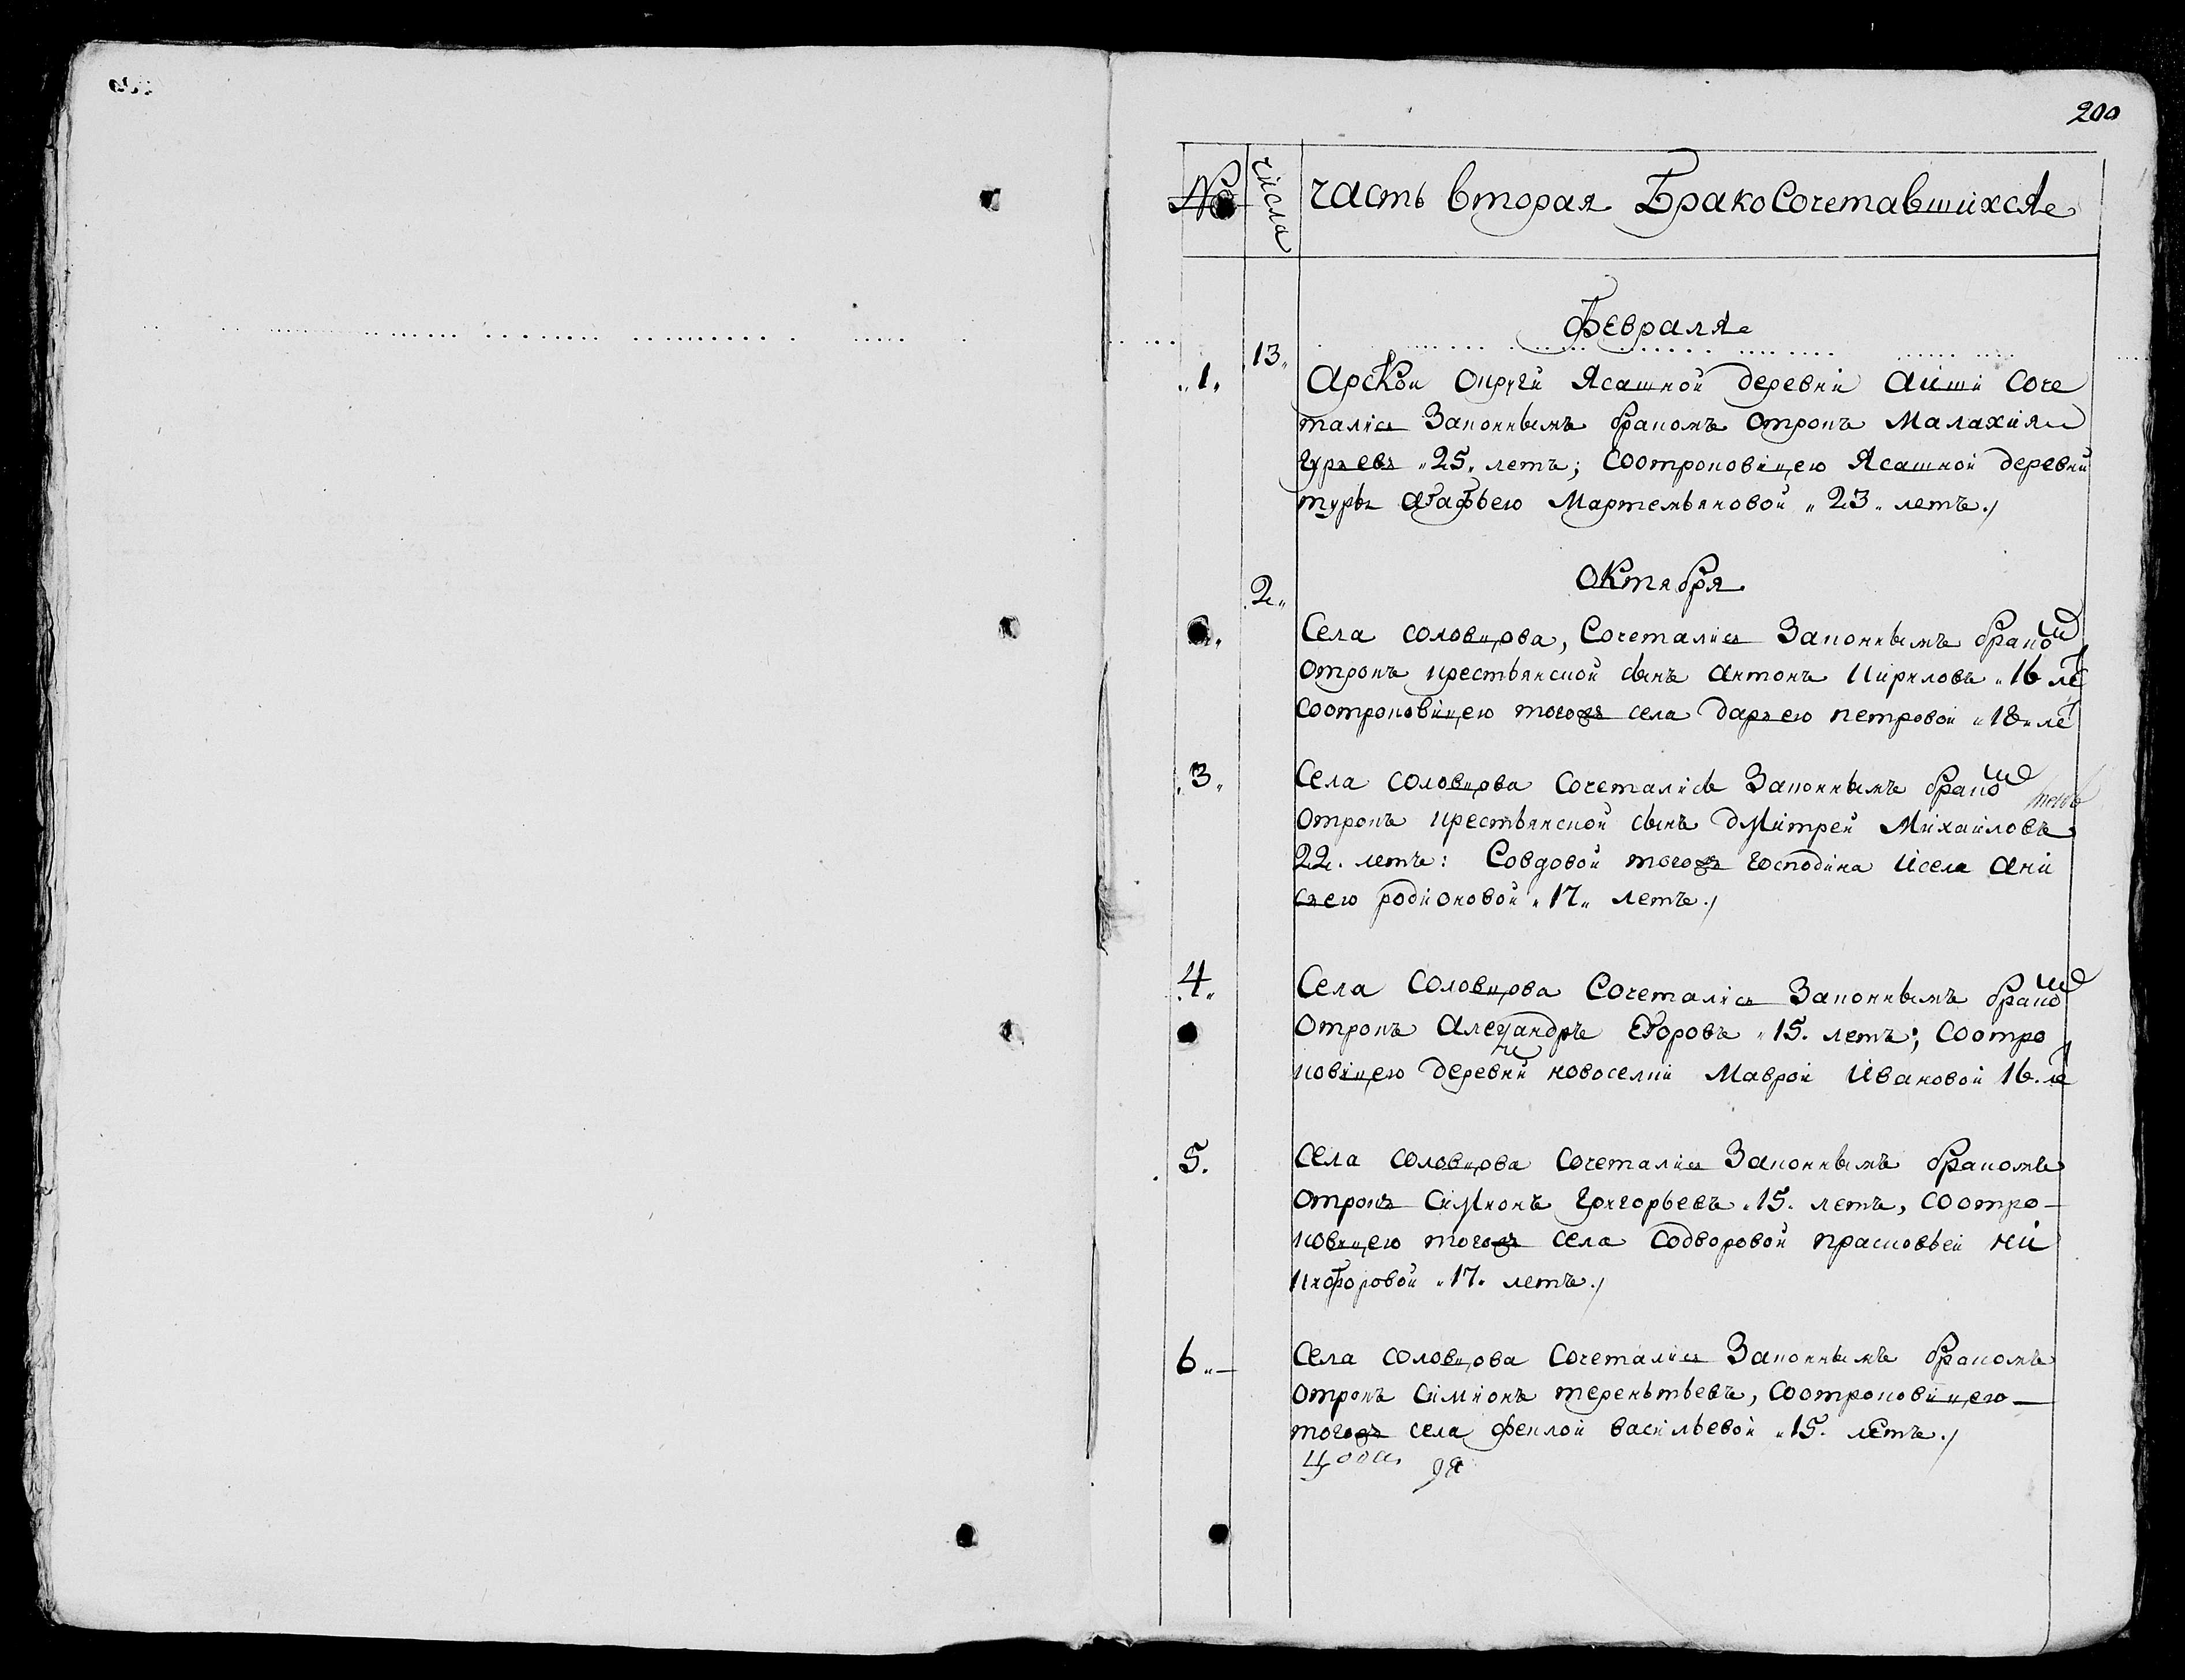 200
№ числа часть вторая БракоСочетавшихся
Февраля
13
1. Арской округи Ясашной деревни Аиши Соче
талис Законнымъ бракомъ Отрокъ Малахия
Гурьевъ 25. летъ; Соотроковицею Ясашной деревни
туры Агафьею Мартемьяновой 23. летъ./
Октября
2
2. Села Соловцова, Сочеталис Законнымъ брако м
Отрокъ крестьянской сынъ Антонъ Кириловъ 16 ле т
Соотроковицею тогожъ села Дарьею Петровой 18 ле т
3. Села Соловцова Сочеталис Законнымъ брако м
Отрокъ крестьянской сынъ Дмитрей Михаиловъ
22. летъ: Совдовой тогожъ Господина исела Ани
сьею родионовой 17. летъ./
4. Села Соловцова Сочеталис Законнымъ брако м
Отрокъ Александръ Егоровъ 15. летъ; Соотро
ковицею деревни новоселки Маврой Ивановой 16. ле т
5. Села Соловцова Сочеталис Законнымъ бракомъ
Отрокъ Симионъ Григорьевъ 15. летъ, Соотро-
ковицею тогожъ села Содворовой прасковьей Ни
кифоровой 17. летъ./
6. Села Соловцова Сочеталис Законнымъ бракомъ
Отрокъ Симионъ терентьевъ, Соотроковицею
тогожъ села феклой васильевой 15. летъ./